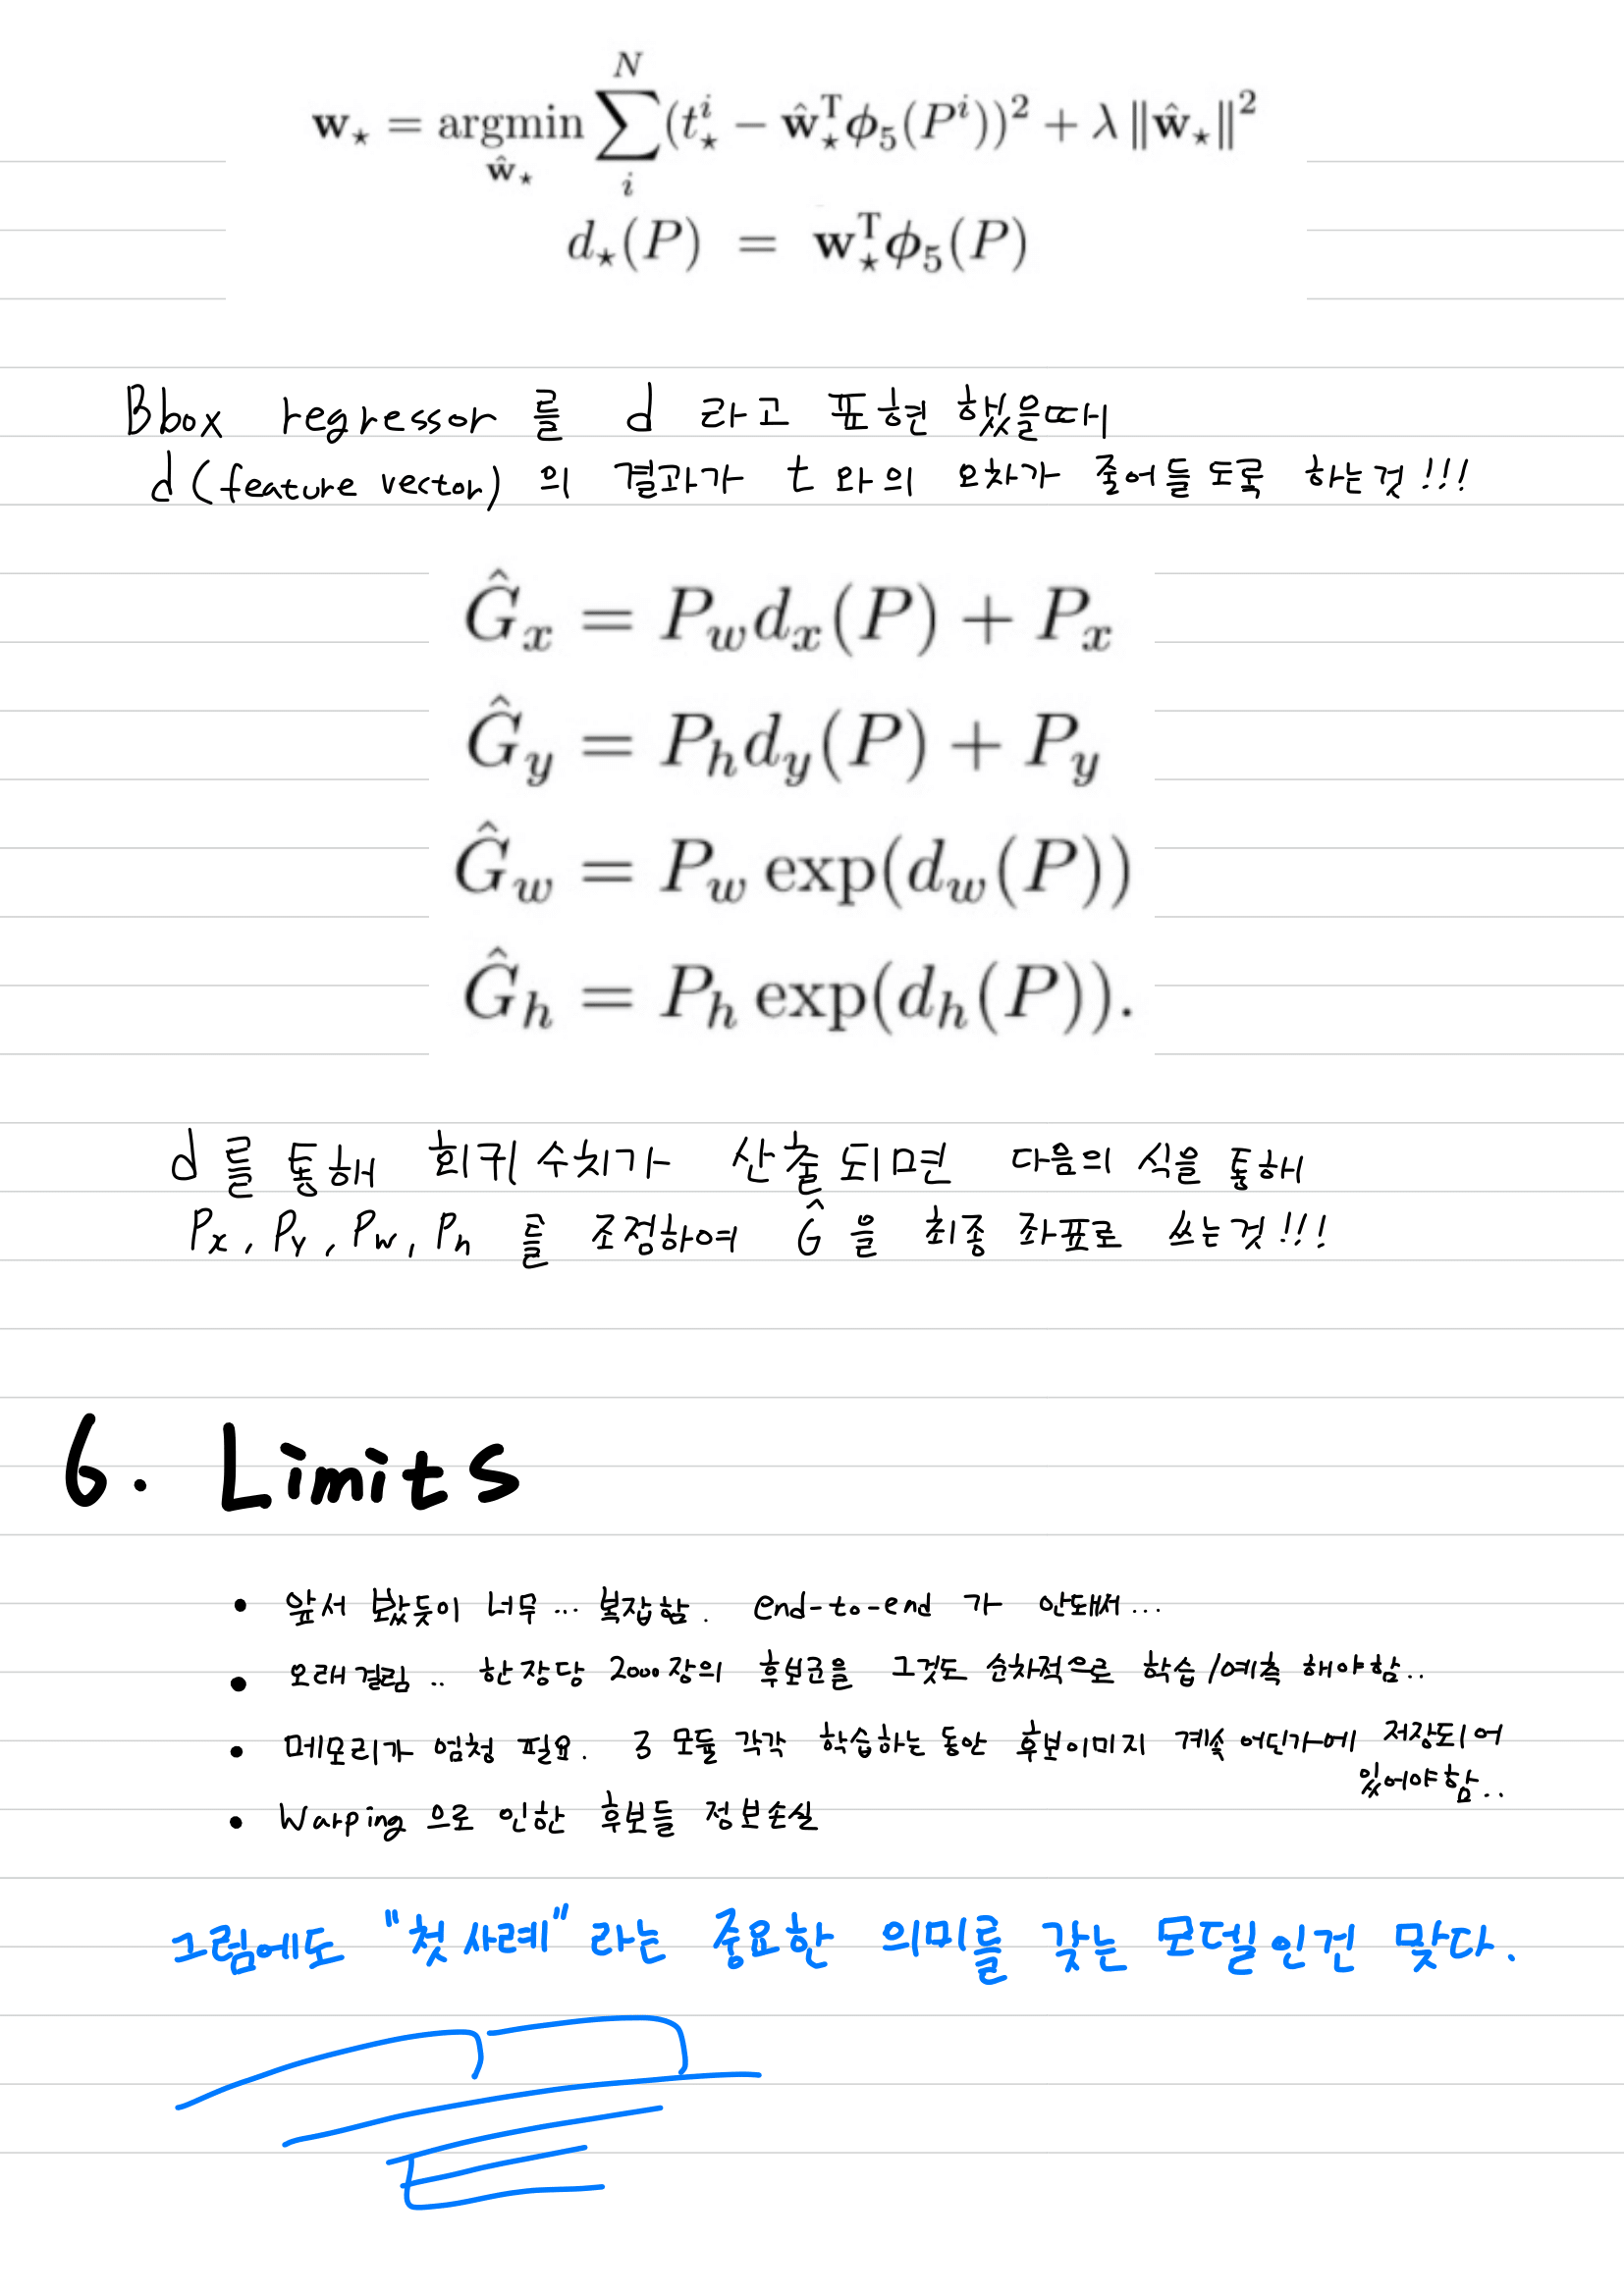 w⋆ = argmin_{ŵ⋆} ∑_i^N (t⋆^i − ŵ⋆^T ϕ5(P^i))² + λ‖ŵ⋆‖²
d⋆(P) = w⋆^T ϕ5(P)
Bbox regressor 를 d 라고 표현 했을때
d (feature vector) 의 결과가 t 와의 오차가 줄어들도록 하는것!!!
Ĝx = Pw dx(P) + Px
Ĝy = Ph dy(P) + Py
Ĝw = Pw exp(dw(P))
Ĝh = Ph exp(dh(P)).
d 를 통해 회귀 수치가 산출되면 다음의 식을 통해
Px, Py, Pw, Ph 를 조정하여 Ĝ 을 최종 좌표로 쓰는것!!!
6. Limits
• 앞서 봤듯이 너무... 복잡함. end-to-end 가 안돼서...
• 오래걸림.. 한장당 2000장의 후보군을 그것도 순차적으로 학습/예측 해야함..
• 메모리가 엄청 필요. 3 모듈 각각 학습하는 동안 후보이미지 계속 어딘가에 저장되어
있어야함..
• Warping 으로 인한 후보들 정보손실
그럼에도 "첫사례"라는 중요한 의미를 갖는 모델인건 맞다.